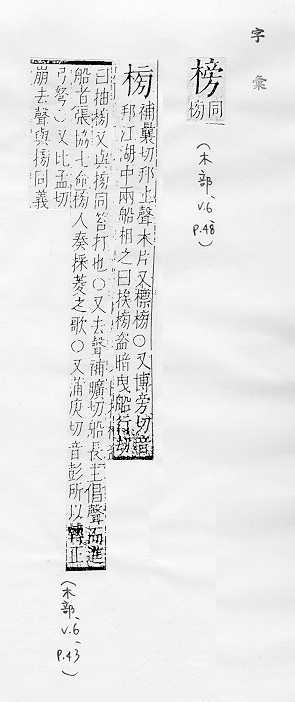 字彙
榜 同㮄
(木部、v.6、p.48)
㮄 補曩切邦上聲木片又標㮄○又博旁切音
邦江湖中兩船相之曰挨㮄盜暗曳船行劫
曰抽㮄又與搒同笞打也○又去聲補曠切船長主倡聲而進
船者張協七命㮄人奏採菱之歌○又蒲庚切音彭所以轉正
弓弩○又比孟切
崩去聲與搒同義
(木部、v.6、p.43)